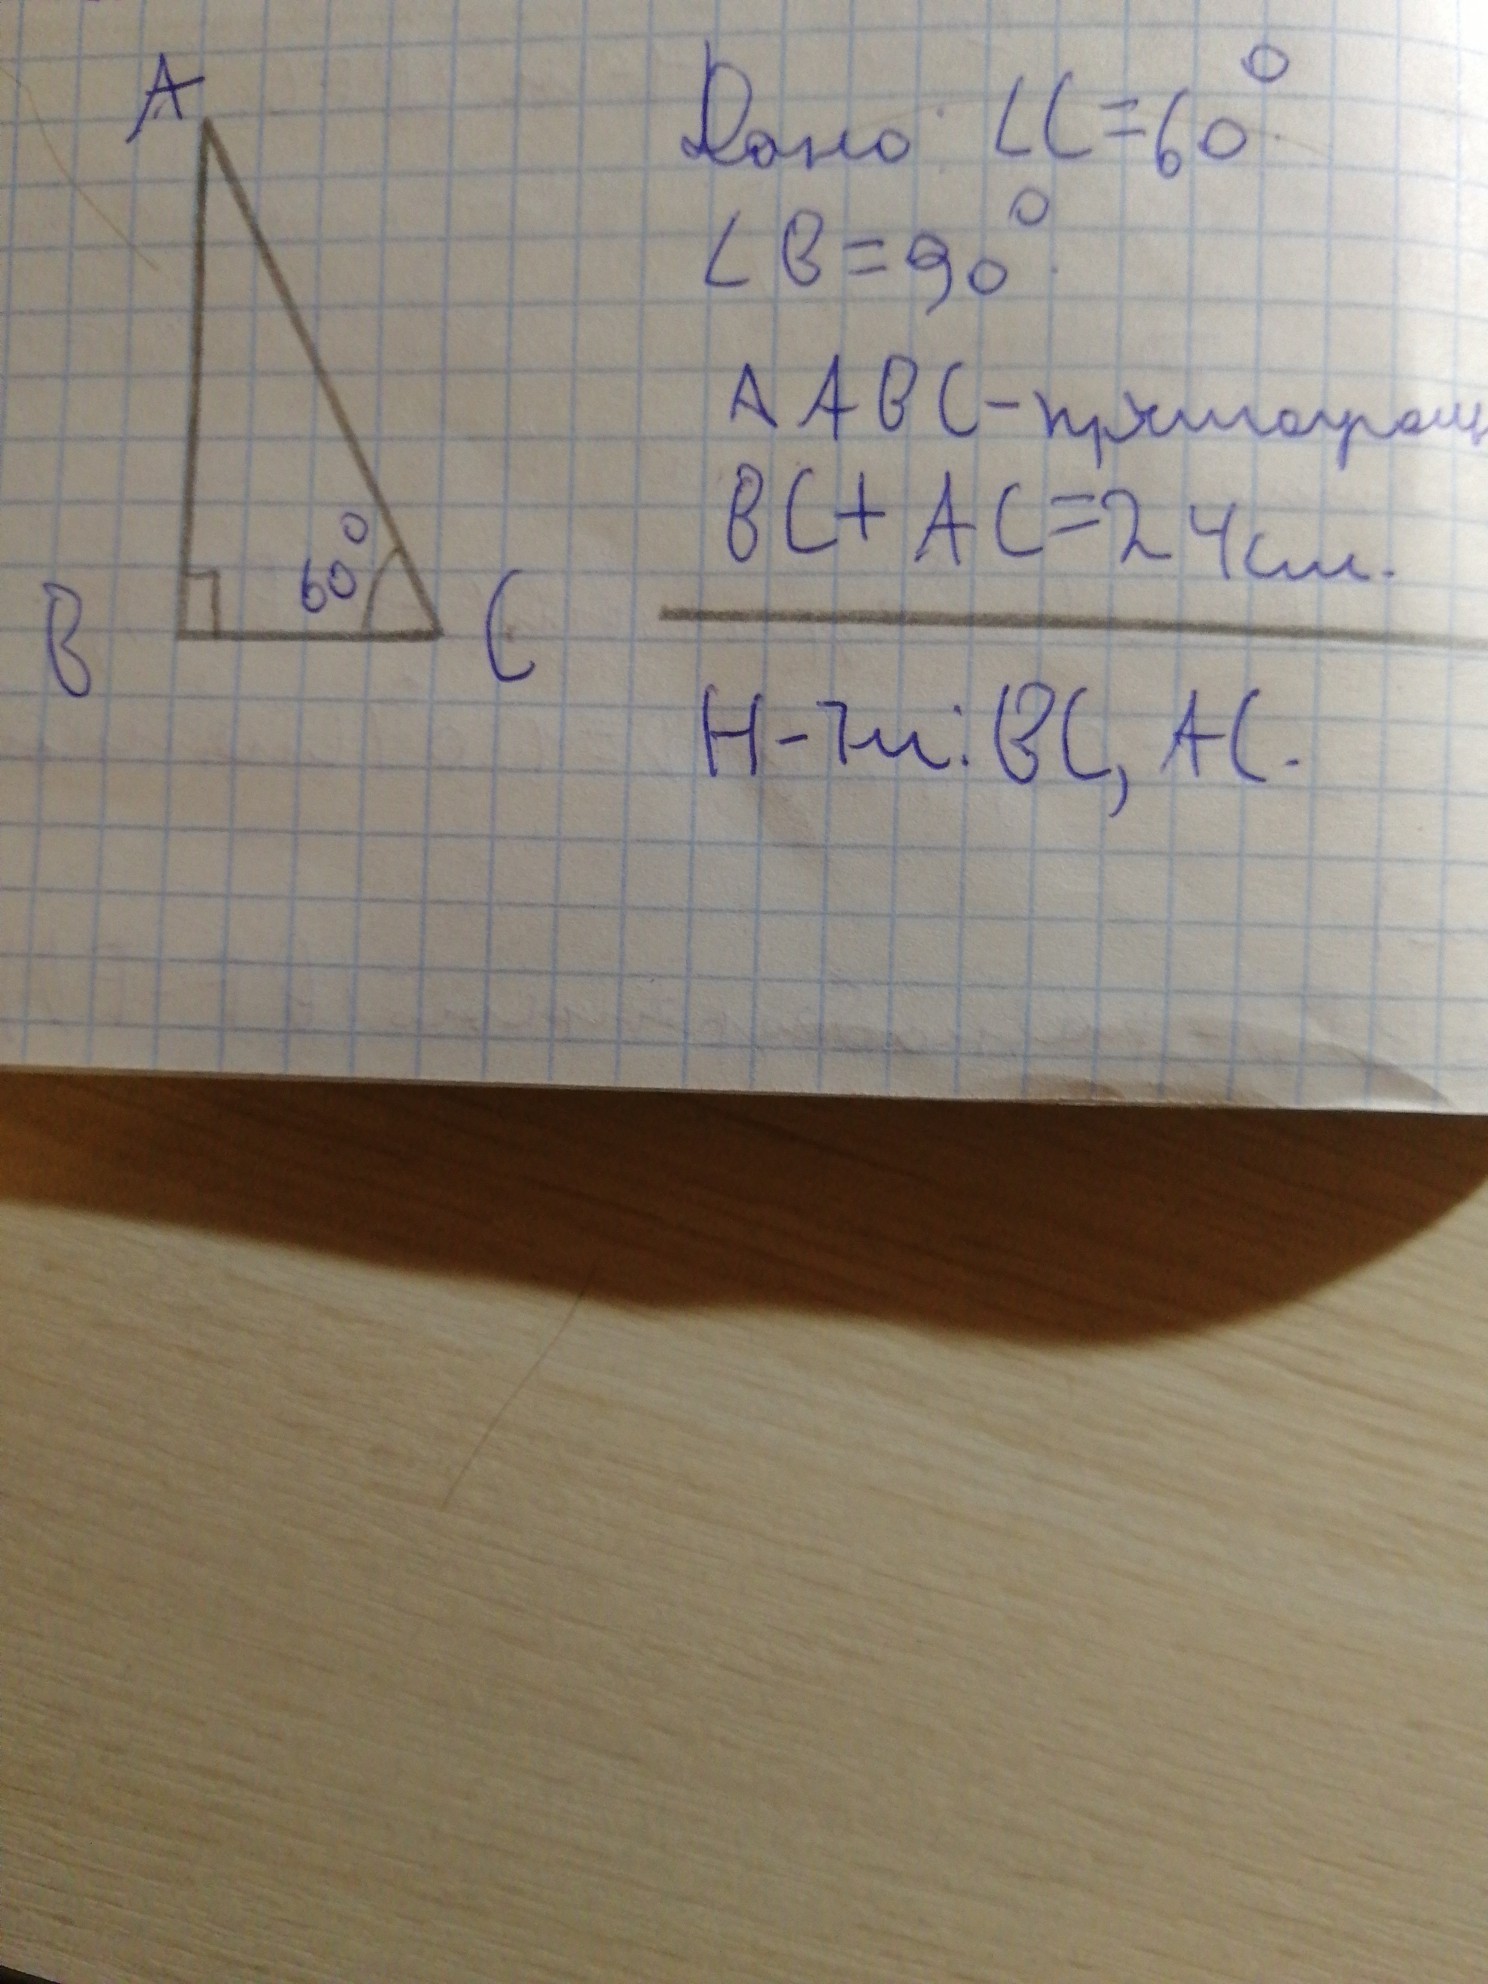 A
B
60°
C
Дано: ∠C=60°
∠B=90°
△ABC-прямоугол
BC+AC=24см.
Н-ти: BC, AC.